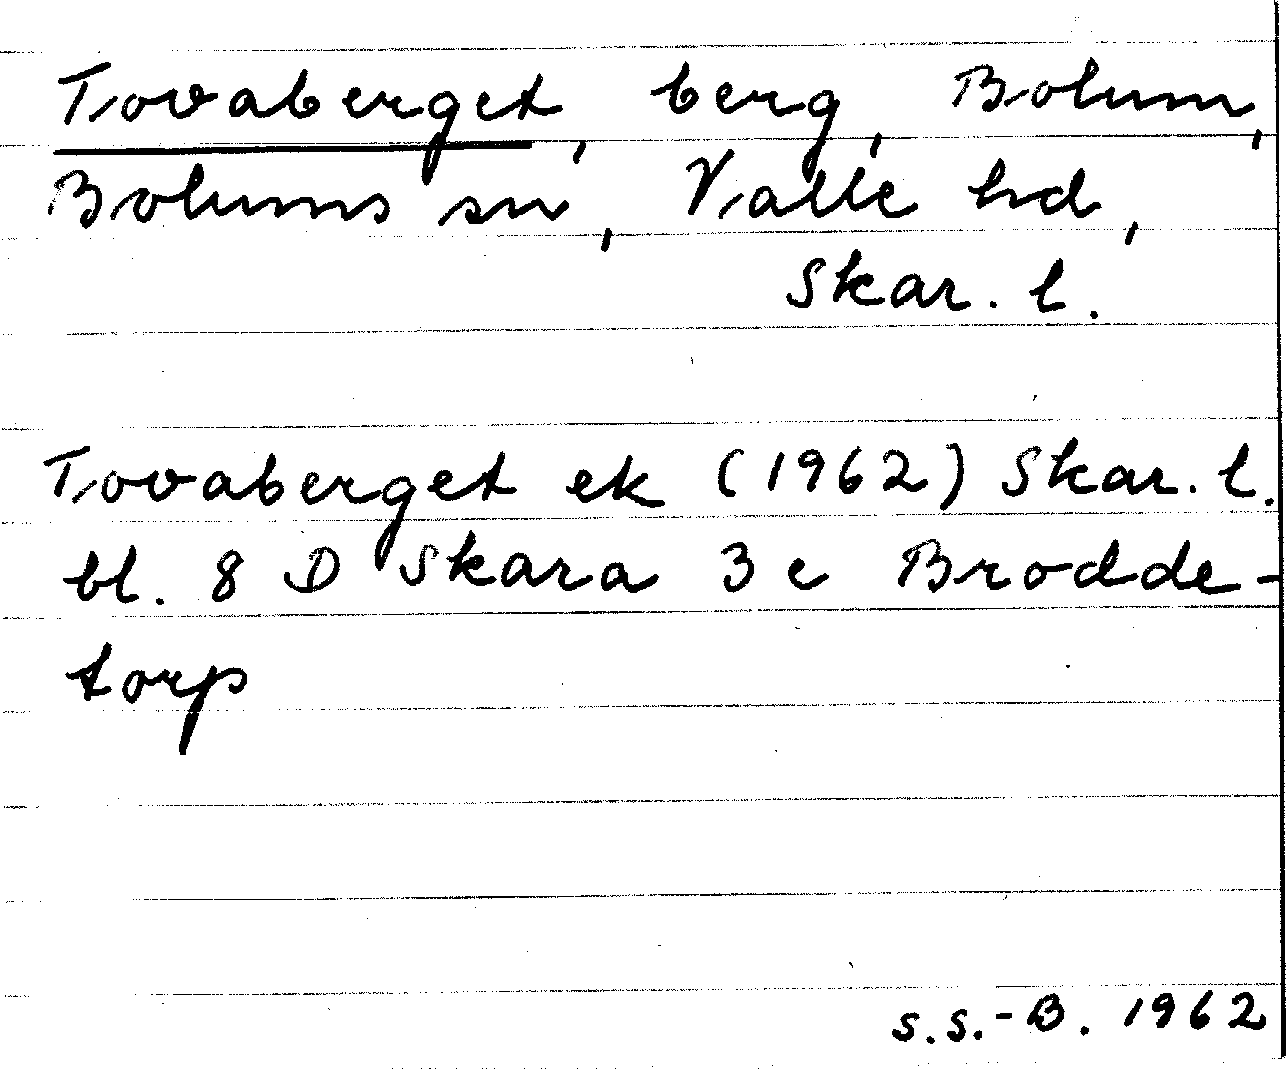 Tovaberget, berg, Bolum,
Bolums sn, Valle hd,
Skar. l.
Tovaberget ek (1962) Skar. l.
bl. 8 D Skara 3 e Brodde-
torp
S.S.-B. 1962